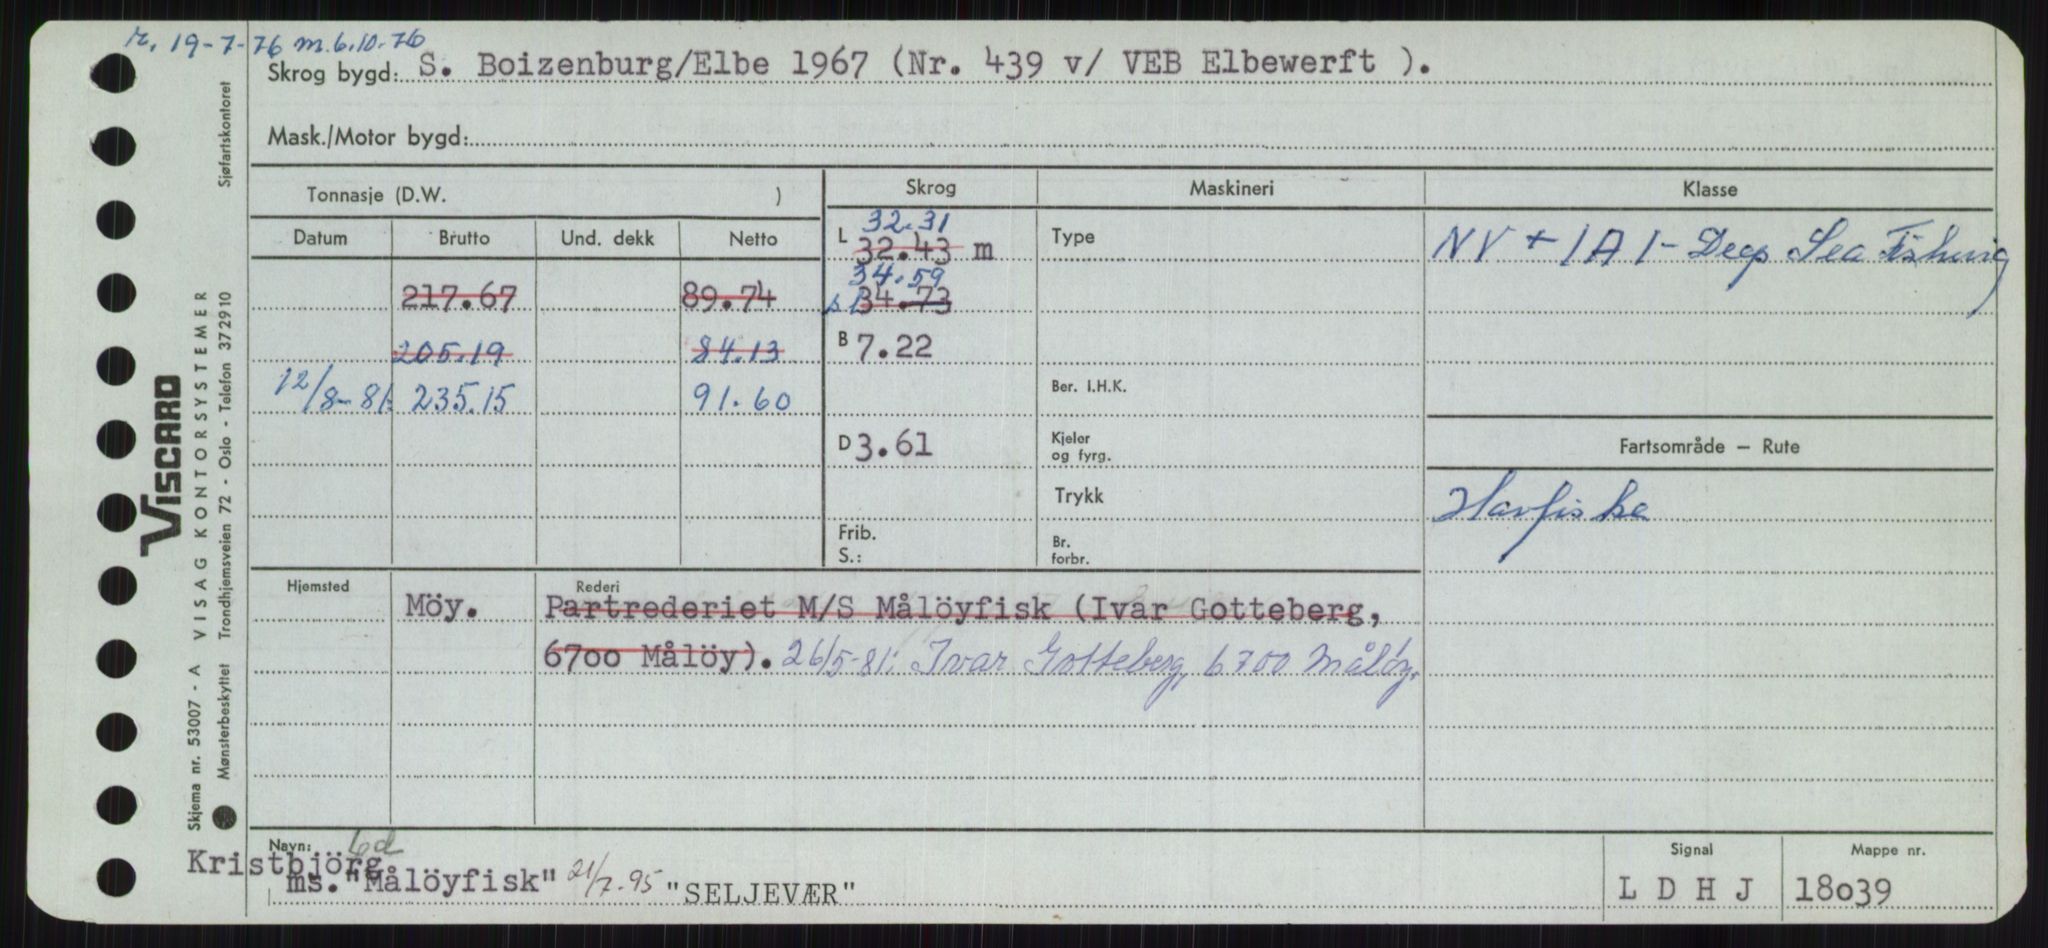 r. 19-7-76 m. 6.10-76
Skrog bygd: S. Boizenburg/Elbe 1967 (Nr. 439 v/ VEB Elbewerft ).
Mask./Motor bygd:
Tonnasje (D.W. )
Skrog
Maskineri
Klasse
Datum
Brutto
Und. dekk
Netto
L 32.31
32.43 m
Type
NV + 1A1 - Deep Sea Fishing
217.67
89.74
34.59
34.73
205.19
84.13
B 7.22
12/8-81: 235.15
91.60
Ber. I.H.K.
D 3.61
Kjeler
og fyrg.
Fartsområde — Rute
Trykk
Havfiske
Frib.
S.:
Br.
forbr.
Hjemsted
Rederi
Möy.
Partrederiet M/S Målöyfisk (Ivar Gotteberg,
6700 Målöy). 26/5-81: Ivar Gotteberg, 6700 Måløy.
Navn:
Kristbjörg
ms. "Målöyfisk" 21/7-95 "SELJEVÆR"
Signal
L D H J
Mappe nr.
18039
Viscard
Skjema nr. 53007 - A VISAG KONTORSYSTEMER
Mønsterbeskyttet Trondhjemsveien 72 - Oslo - Telefon 372910
Sjøfartskontoret